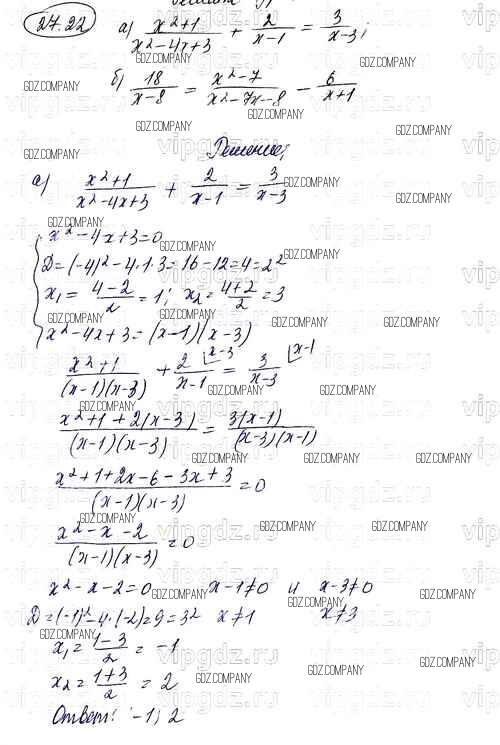 27.22
а) (x²+1)/(x²-4x+3) + 2/(x-1) = 3/(x-3);
б) 18/(x-8) = (x²-7)/(x²-7x-8) - 6/(x+1)
Решение;
а) (x²+1)/(x²-4x+3) + 2/(x-1) = 3/(x-3)
x²-4x+3=0
D=(-4)²-4·1·3=16-12=4=2²
x₁=(4-2)/2=1; x₂=(4+2)/2=3
x²-4x+3=(x-1)(x-3)
(x²+1)/((x-1)(x-3)) + 2/(x-1) |x-3 = 3/(x-3) |x-1
(x²+1+2(x-3))/((x-1)(x-3)) = 3(x-1)/((x-3)(x-1))
(x²+1+2x-6-3x+3)/((x-1)(x-3)) = 0
(x²-x-2)/((x-1)(x-3)) = 0
x²-x-2=0 x-1≠0 и x-3≠0
D=(-1)²-4·(-2)=9=3² x≠1 x≠3
x₁=(1-3)/2=-1
x₂=(1+3)/2=2
Ответ: -1; 2
GDZ.COMPANY
vipgdz.ru